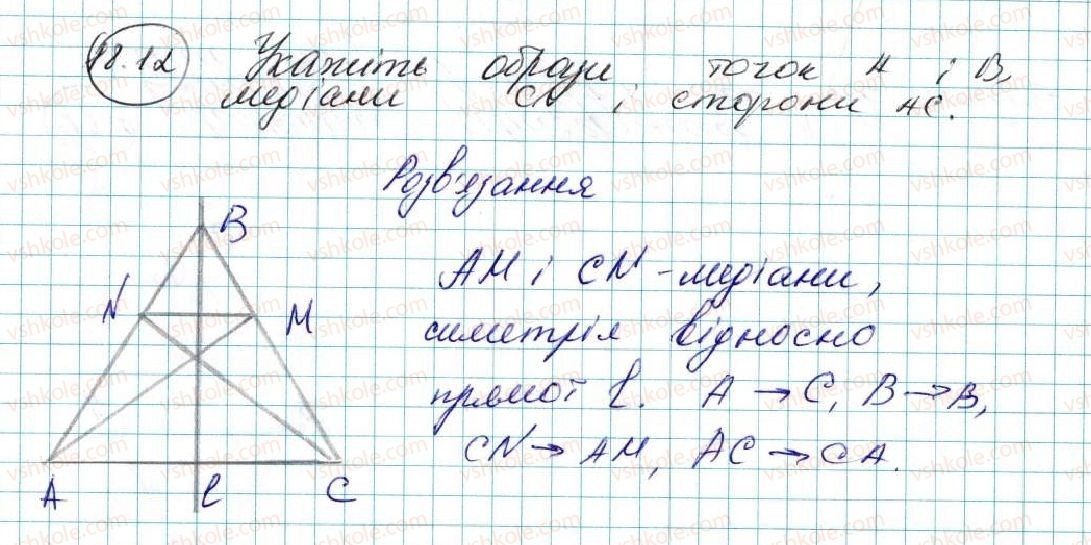 18.12 Укажіть образи точок A і B,
медіани CN і сторони AC.
Розв'язання
B
N M
A l C
AM і CN - медіани,
симетрія відносно
прямої l. A → C, B → B,
CN → AM, AC → CA.
vshkole.com